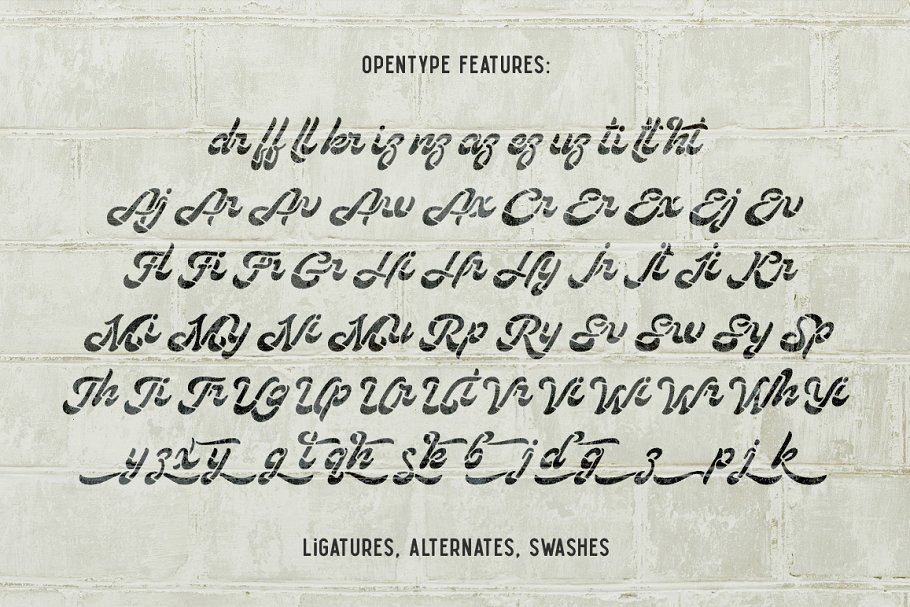 OPENTYPE FEATURES:
dr ff ll kr iz nz az ez uz ti tt ht
Aj Ar Av Aw Ax Cr Er Ex Ej Ev
Fl Fi Fr Gr Hi Hr Hy Jr Jt Ji Kr
Mi My Ni Mu Rp Ry Sv Sw Sy Sp
Th Ti Tr Ug Up Ur Ut Vr Vi Wi Wr Wh Yi
y z x y g t q h s k b j d g z p j k
LiGATURES, ALTERNATES, SWASHES